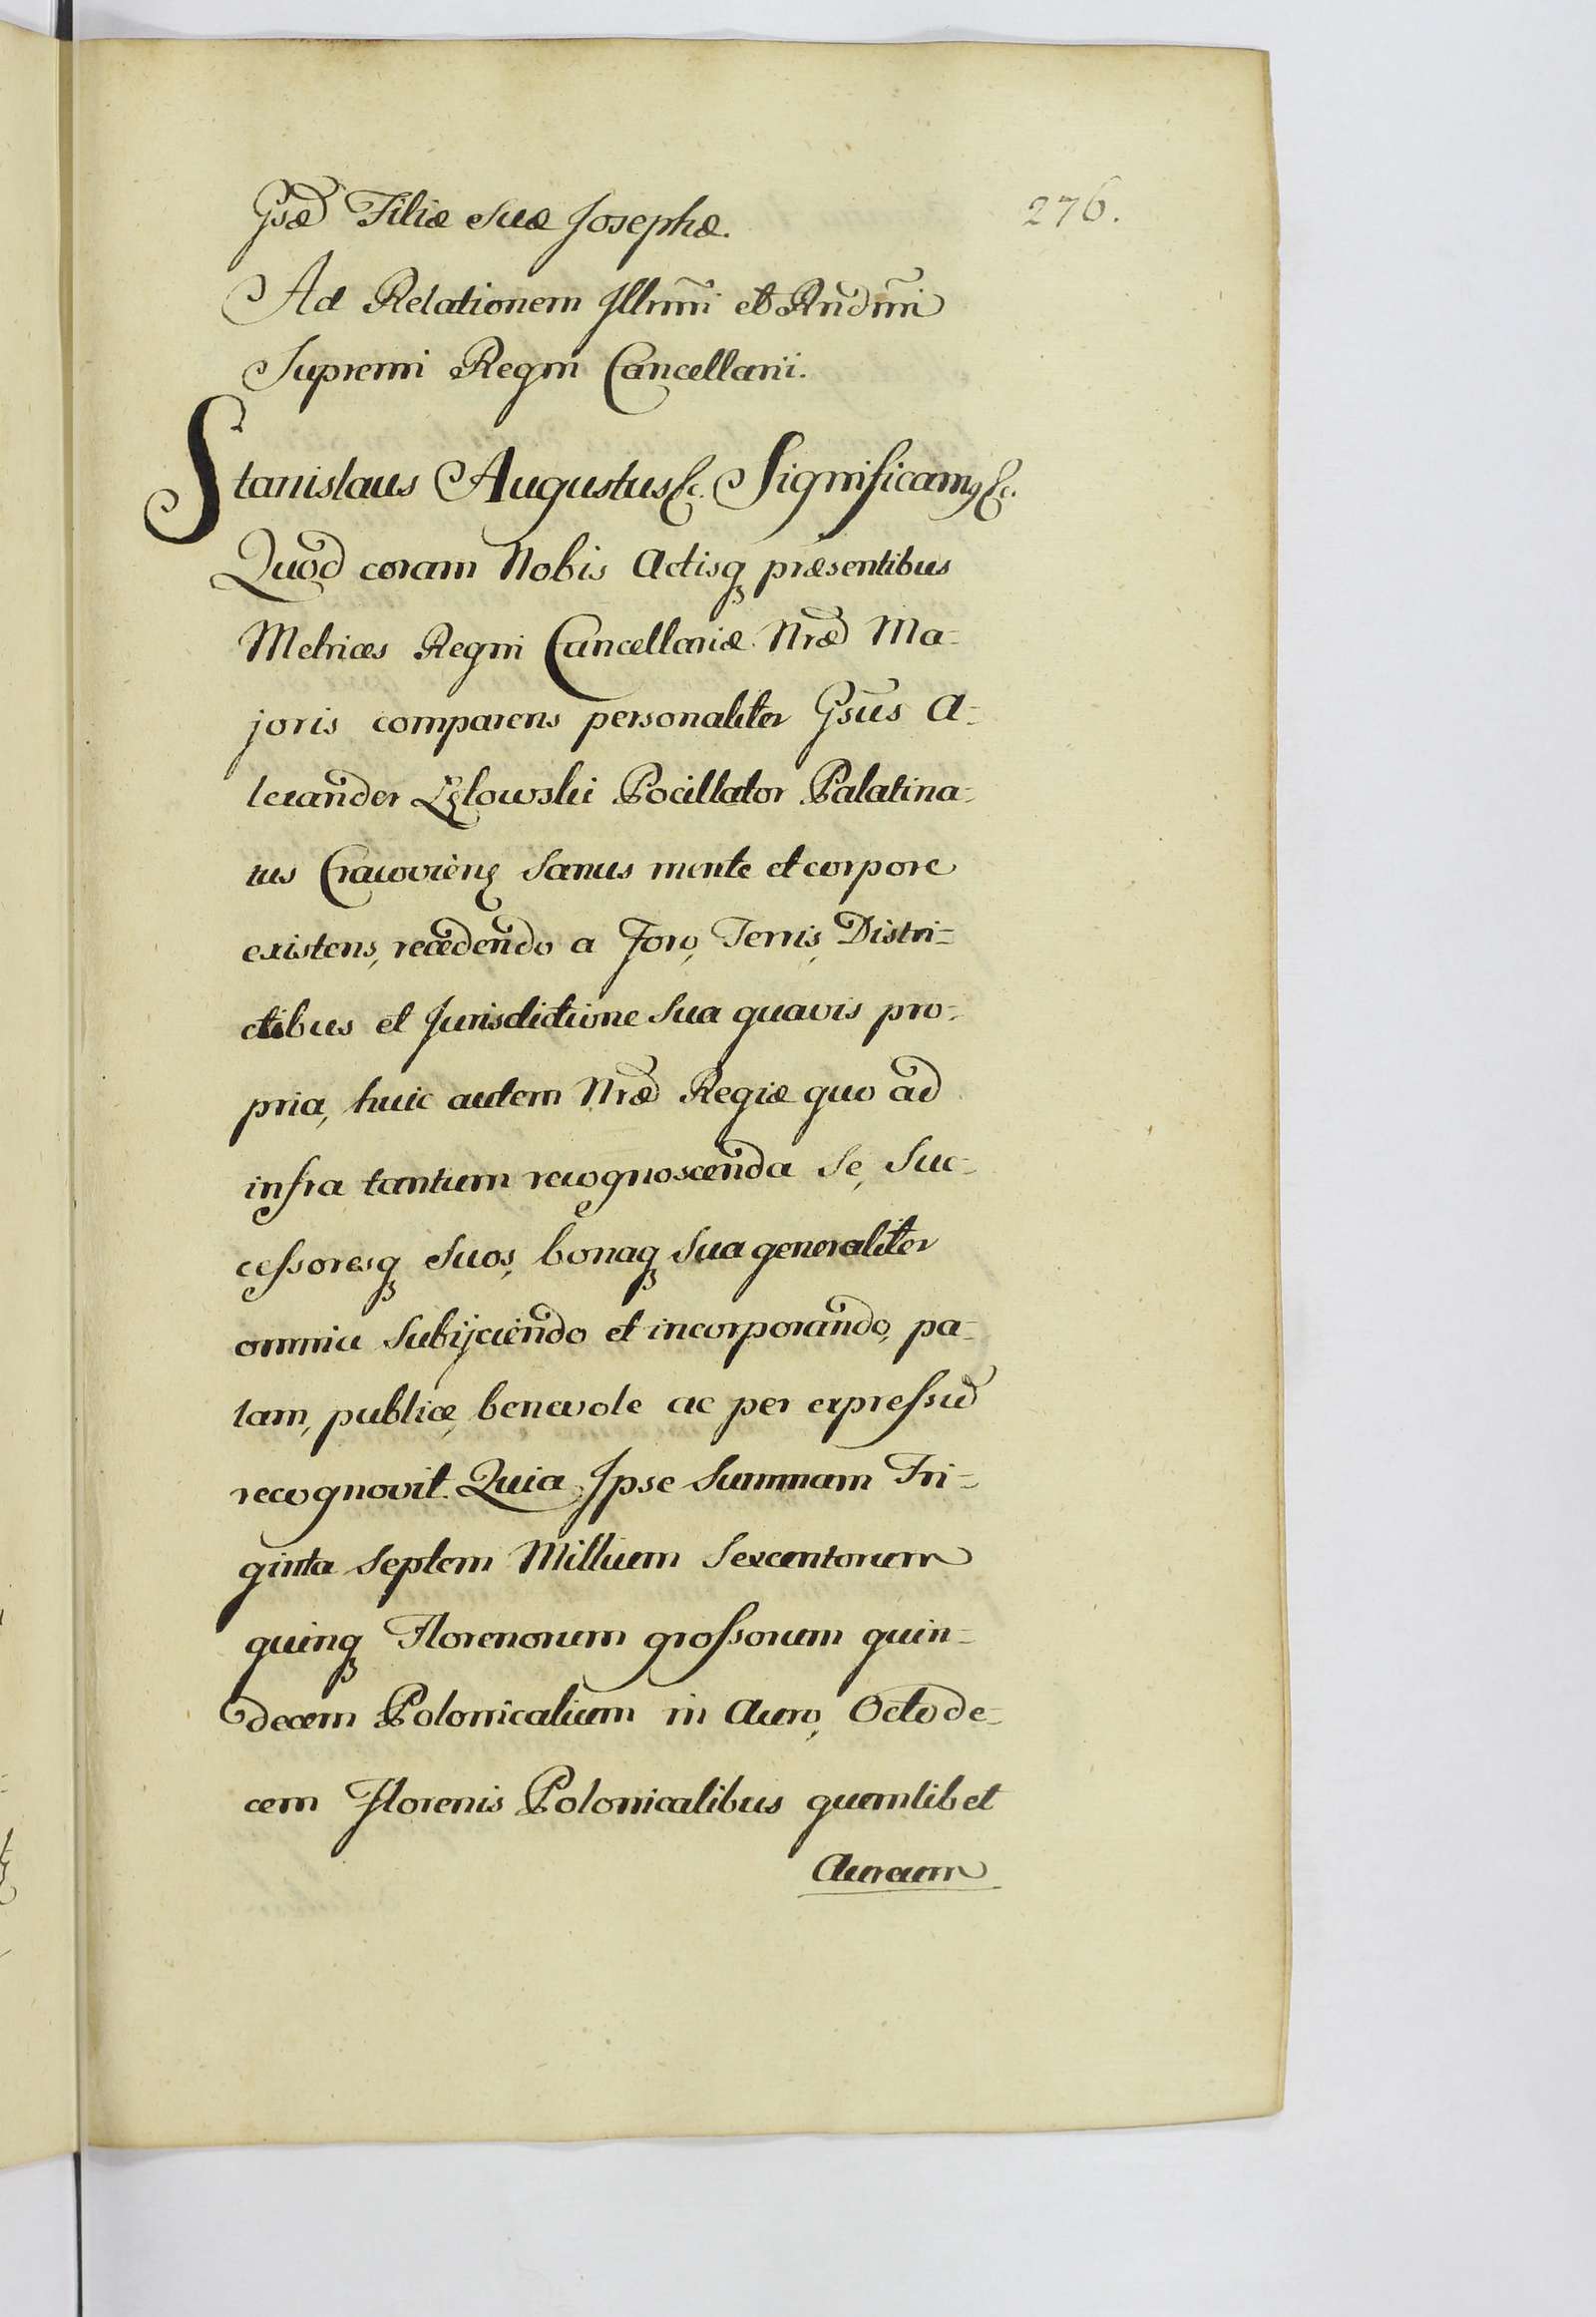 276.
Gsæ Filiæ Suæ Josephæ.
Ad Relationem Illrmi et Rndmi
Supremi Regni Cancellarii.
Stanislaus Augustus &c. Significamq &c.
Quod coram Nobis Actisq præsentibus
Metrices Regni Cancellariæ Nræ Ma-
joris comparens personaliter Gsus A-
lexander Łętowski Pocillator Palatina-
tus Cracovien̄ Sanus mente et corpore
existens, recedendo a Foro, Terris, Distri-
ctibus et Jurisdictione Sua quavis pro-
pria, huic autem Nræ Regiæ quo ad
infra tantum recognoscenda Se, Suc-
cessoresq Suos, bonaq Sua generaliter
omnia Subijciendo et incorporando, pa-
lam, publice, benevole ac per expressu
recognovit. Quia Ipse Summam Tri-
ginta Septem Millium Sexcentorum
quinq Florenorum grossorum quin-
decem Polonicalium in Auro, Octode-
cem Florenis Polonicalibus quemlibet
Aureum